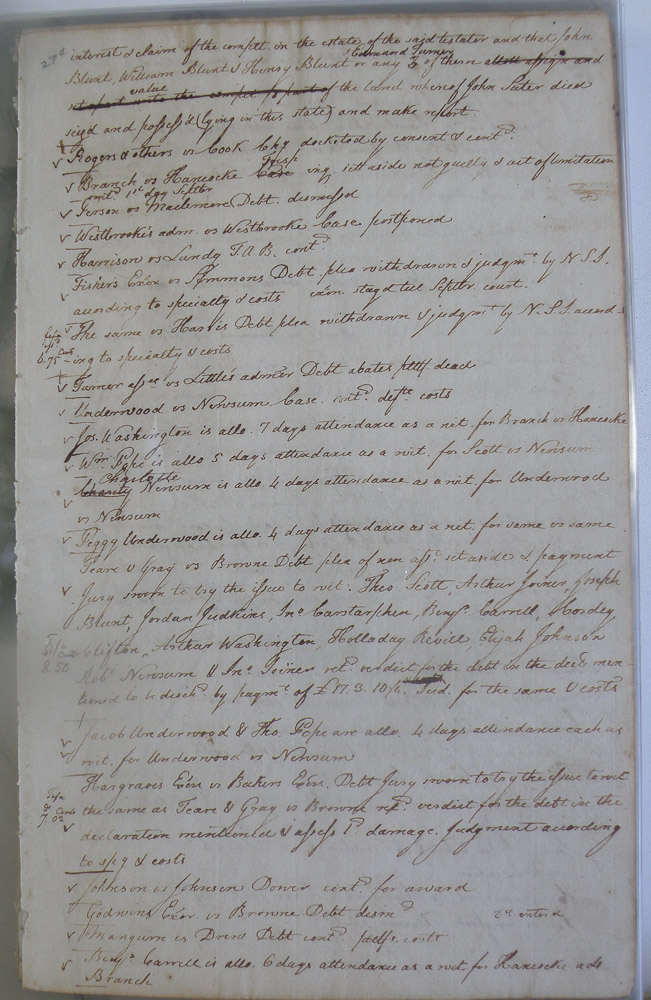 interest & claim of the complt. in the estate of the said testator and that John
Edmund Turner
Blunt, William Blunt & Henry Blunt or any 3 of them allott assign and
value
set apart unto the complt. part of the land whereof John Suter died
seiz'd and possess'd (lying in this state) and make report
Rogers & others vs Cook Chy docketed by consent & contd.
Tresp
Branch vs Hancocke Case inq. set aside not guilty & act of limitation
contd. 1st day Septbr
Person vs Maclemore Debt. dismissed
Westbrooke's adm. vs Westbrooke Case postponed
Harrison vs Lundy T.A.B. contd.
Fishers Exor vs Symmons Debt plea withdrawn & judgmt. by N.S.I.
according to specialty & costs exon. stayd till Septbr. court.
The same vs Harris Debt plea withdrawn & judgmt by N.S.I. accord
6.75 Cents
ing to specialty & costs
Turner assee vs Little's admr Debt abates pltff. dead
Underwood vs Newsum Case. contd. defts costs
Jos. Washington is allo. 7 days attendance as a wit. for Branch vs Hancocke
Wm. Pope is allo 5 days attendance as a wit. for Scott vs Newsum
Charlotte
Charity Newsum is allo. 4 days attendance as a wit. for Underwood
vs Newsum
Peggy Underwood is allo. 4 days attendance as a wit. for same vs same
Teare & Gray vs Browne Debt plea of non asst. set aside & payment
Jury sworn to try the issue to wit. Theo. Scott, Arthur Joiner, Joseph
Blunt, Jordan Judkins, Jno Carstarphen, Benjn. Carrell, Hosdey
Clifton, Arthur Washington, Holladay Revill, Elijah Johnson
8.50
Robt. Newsum & Jno. Joiner retd. verdict for the debt in the decn. men-
tioned to be disch. by paymt. of £17.3.10½. Jud. for the same & costs
Jacob Underwood & Tho. Pope are allo. 4 days attendance each as
wit. for Underwood vs Newsum
Hargraves Exor vs Bakers Exor. Debt Jury sworn to try the issue to wit
7.02 Cents
the same as Teare & Gray vs Browne retd. verdict for the debt in the
declaration mentioned & assess 1d. damage. Judgment according
to spey & costs
Johnson vs Johnson Dower contd. for award
Godwins Exor. vs Browne Debt dismd
2d enterd
Mangum vs Drew Debt contd. pltffs. costs
Benjn. Carrell is allo. 6 days attendance as a wit. for Hancocke ads
Branch